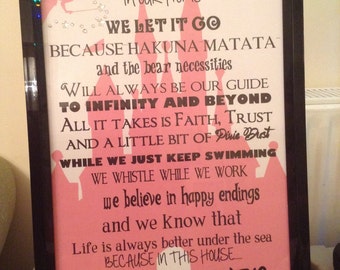 WE LET IT GO
BECAUSE HAKUNA MATATA
and the bear necessities
WILL ALWAYS BE OUR GUIDE
TO INFINITY AND BEYOND
ALL IT TAKES IS FAITH, TRUST
AND A LITTLE BIT OF Pixie Dust
WHILE WE JUST KEEP SWIMMING
WE WHISTLE WHILE WE WORK
we believe in happy endings
and we know that
Life is always better under the sea
BECAUSE IN THIS HOUSE...